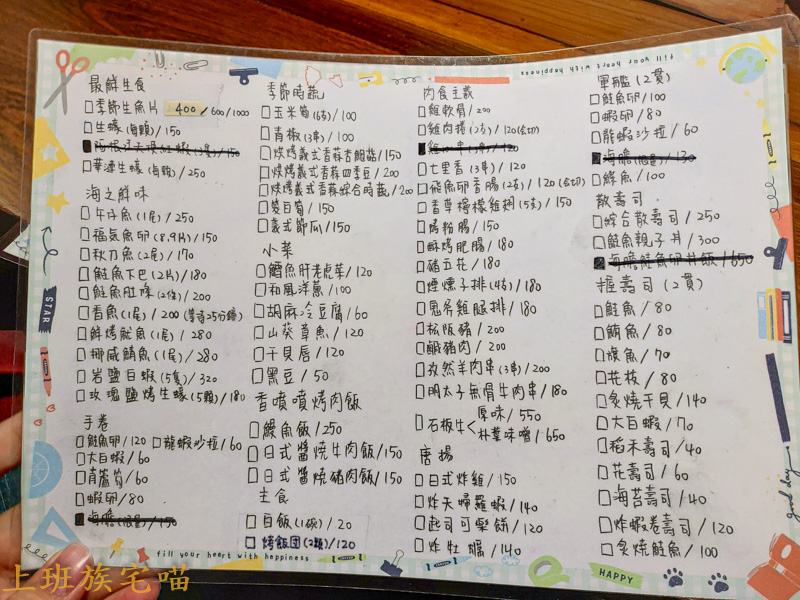 fill your heart with happiness
最鮮生食
季節生魚片 400/600/1000
生蠔(每顆)/150
華漣生蠔(每顆)/250
海之鮮味
午仔魚(1尾)/250
福氣魚卵(8.9片)/150
秋刀魚(2尾)/170
鮭魚下巴(2片)/180
鮭魚肚條(2條)/200
香魚(1尾)/200(等待25分鐘)
鮮烤魷魚(1尾)/280
挪威鯖魚(1尾)/280
岩鹽白蝦(5隻)/320
玫瑰鹽烤生蠔(5顆)/180
手卷
鮭魚卵/120 龍蝦沙拉/60
大白蝦/60
青蘆筍/60
蝦卵/80
海膽(限量)/150
季節時蔬
玉米筍(6支)/100
青椒(3串)/100
烘烤義式香蒜杏鮑菇/150
烘烤義式香蒜四季豆/200
烘烤義式香蒜綜合時蔬/200
筊白筍/150
義式節瓜/150
小菜
鱈魚肝老虎菜/120
和風洋蔥/100
胡麻冷豆腐/60
山葵章魚/120
干貝唇/120
黑豆/50
香噴噴烤肉飯
鰻魚飯/250
日式醬燒牛肉飯/150
日式醬燒豬肉飯/150
主食
白飯(1碗)/20
烤飯団(2顆)/120
肉食主義
雞軟骨/200
雞肉捲(2支)/120(含切)
七里香(3串)/120
飛魚卵香腸(2支)/120(含切)
香草檸檬雞翅(5支)/150
腸粉腸/150
酥烤肥腸/180
豬五花/180
煙燻子排(4支)/180
鬼爪雞腿排/180
松阪豬/200
鹹豬肉/200
孜然羊肉串(3串)/200
明太子無骨牛肉串/180
石板牛<厚味/550
朴葉味噌/650
唐揚
日式炸雞/150
炸天婦羅蝦/140
起司可樂餅/120
炸牡蠣/140
軍艦(2貫)
鮭魚卵/100
蝦卵/80
龍蝦沙拉/60
海膽(限量)/130
鰈魚/100
散壽司
綜合散壽司/250
鮭魚親子丼/300
海膽鮭魚卵丼飯/650
握壽司(2貫)
鮭魚/80
鮪魚/80
旗魚/70
花枝/80
炙燒干貝/140
大白蝦/70
稻禾壽司/40
花壽司/60
海苔壽司/40
炸蝦卷壽司/120
炙燒鮭魚/100
STAR
good day
fill your heart with happiness
HAPPY
上班族宅喵